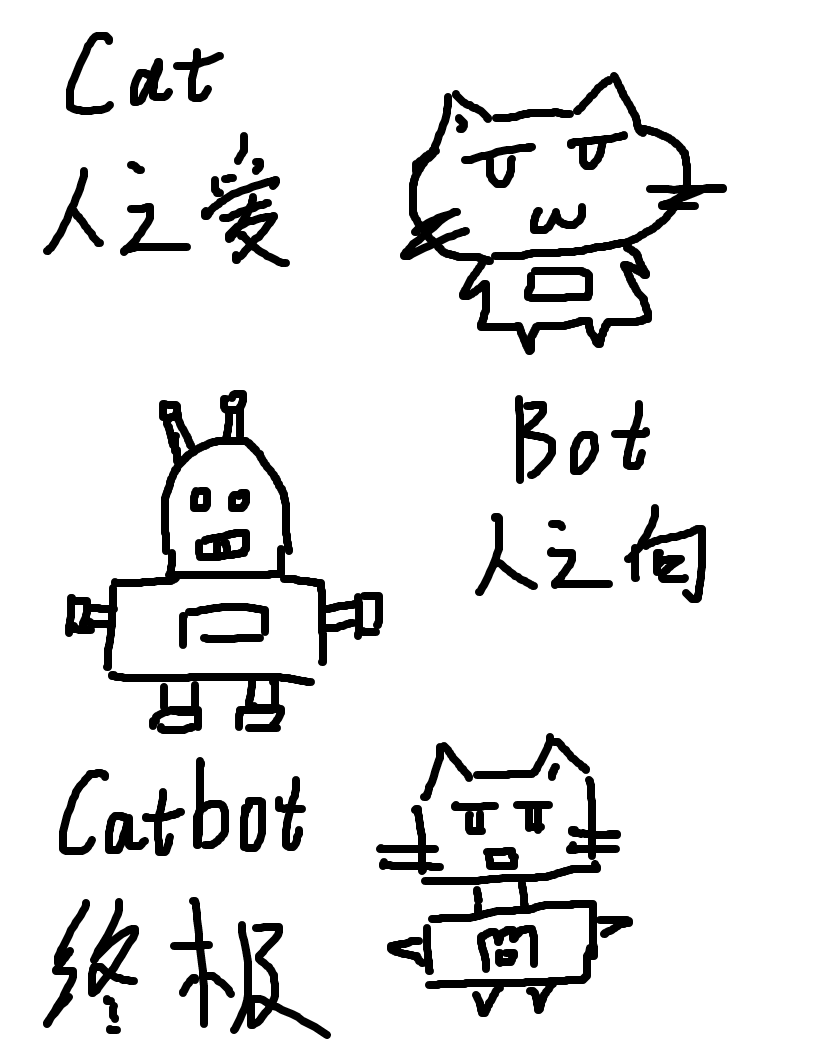 Cat
人之爱
Bot
人之向
Catbot
终极